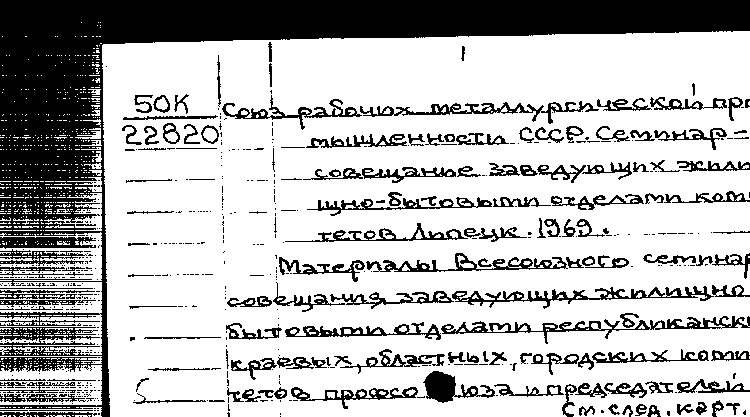 50К
22820
Союз рабочих металлургической про
мышленности СССР. Семинар-
совещание заведующих жили
щно-бытовыми отделами коми
тетов Липецк. 1969.
Материалы Всесоюзного семинар
совещания заведующих жилищно
бытовыми отделами республикански
краевых, областных, городских коми
тетов профсоюза и председателей
См. след. карт.
5